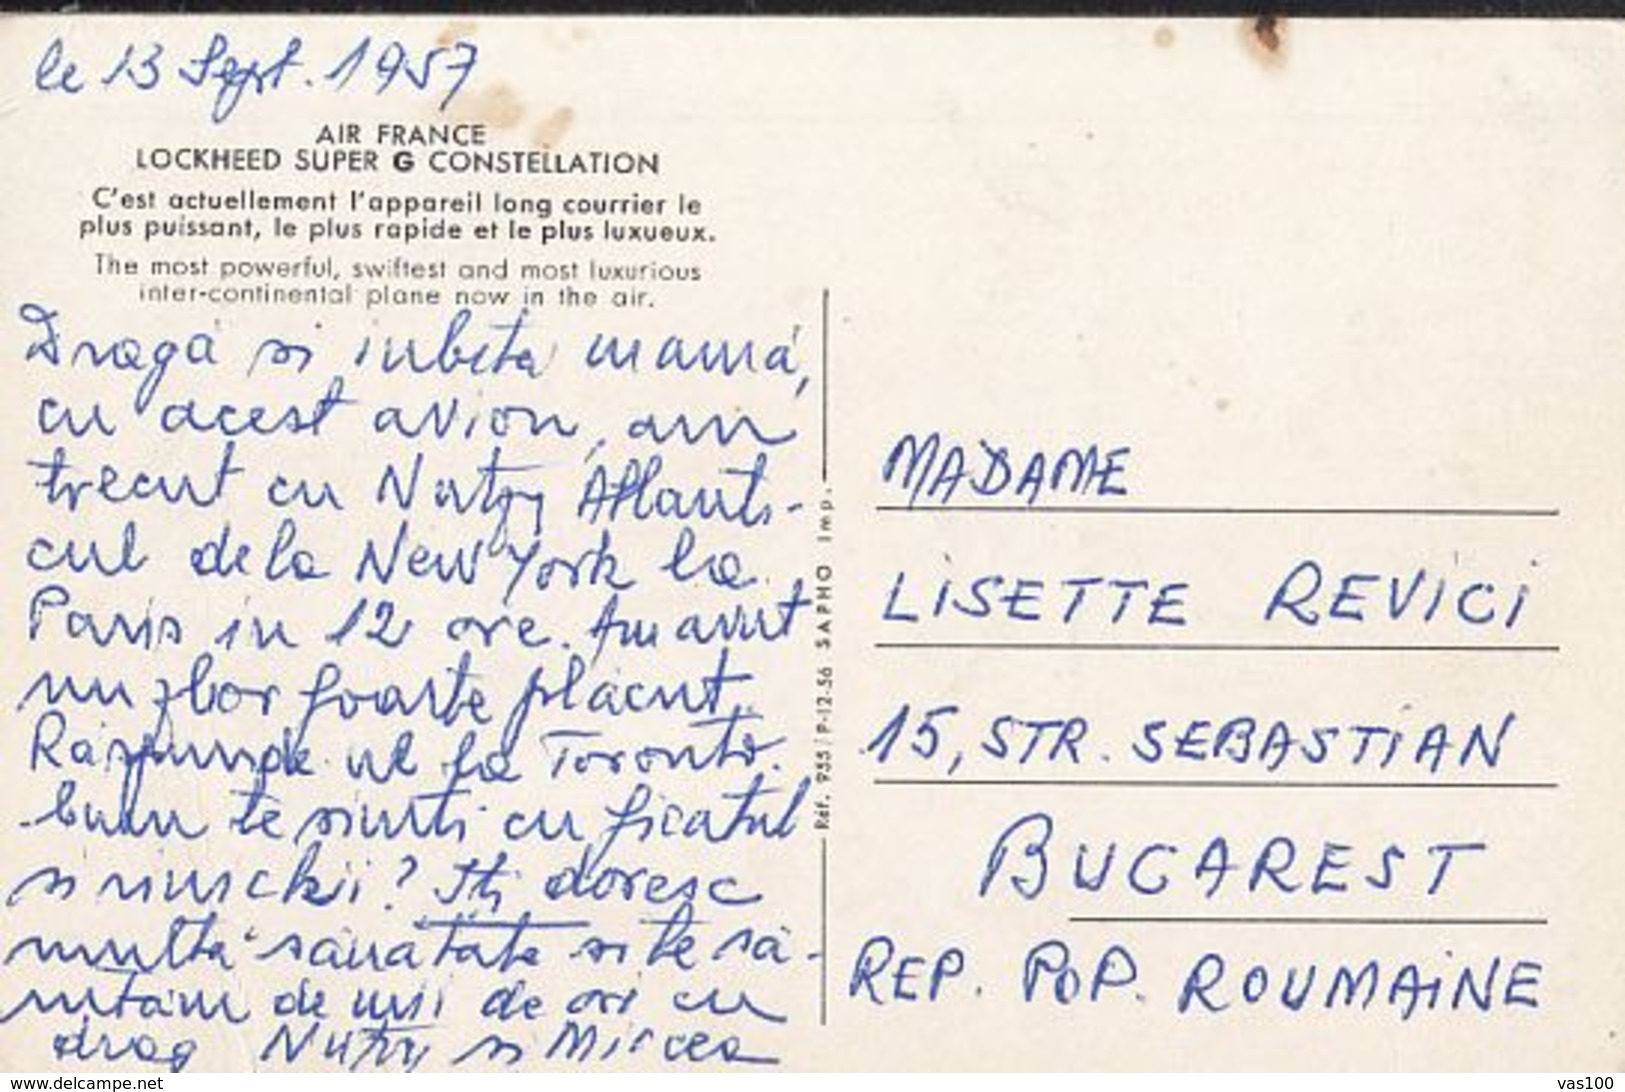 le 13 Sept. 1957
AIR FRANCE
LOCKHEED SUPER G CONSTELLATION
C'est actuellement l'appareil long courrier le
plus puissant, le plus rapide et le plus luxueux.
The most powerful, swiftest and most luxurious
inter-continental plane now in the air.
Dragă si iubită mamă,
cu acest avion, am
trecut cu Nutzy Atlanti-
cul de la New York la
Paris in 12 ore. Am avut
un zbor foarte plăcut.
Răspunde ne la Toronto.
bum te simti cu ficatul
si rinichii? Iti doresc
multă sănătate si te să-
rutăm de mii de ori cu
drag Nutzy si Mircea
Réf. 955 / P-12-56 SAPHO Imp.
MADAME
LISETTE REVICI
15, STR. SEBASTIAN
BUCAREST
REP. POP. ROUMAINE
www.delcampe.net
vas100